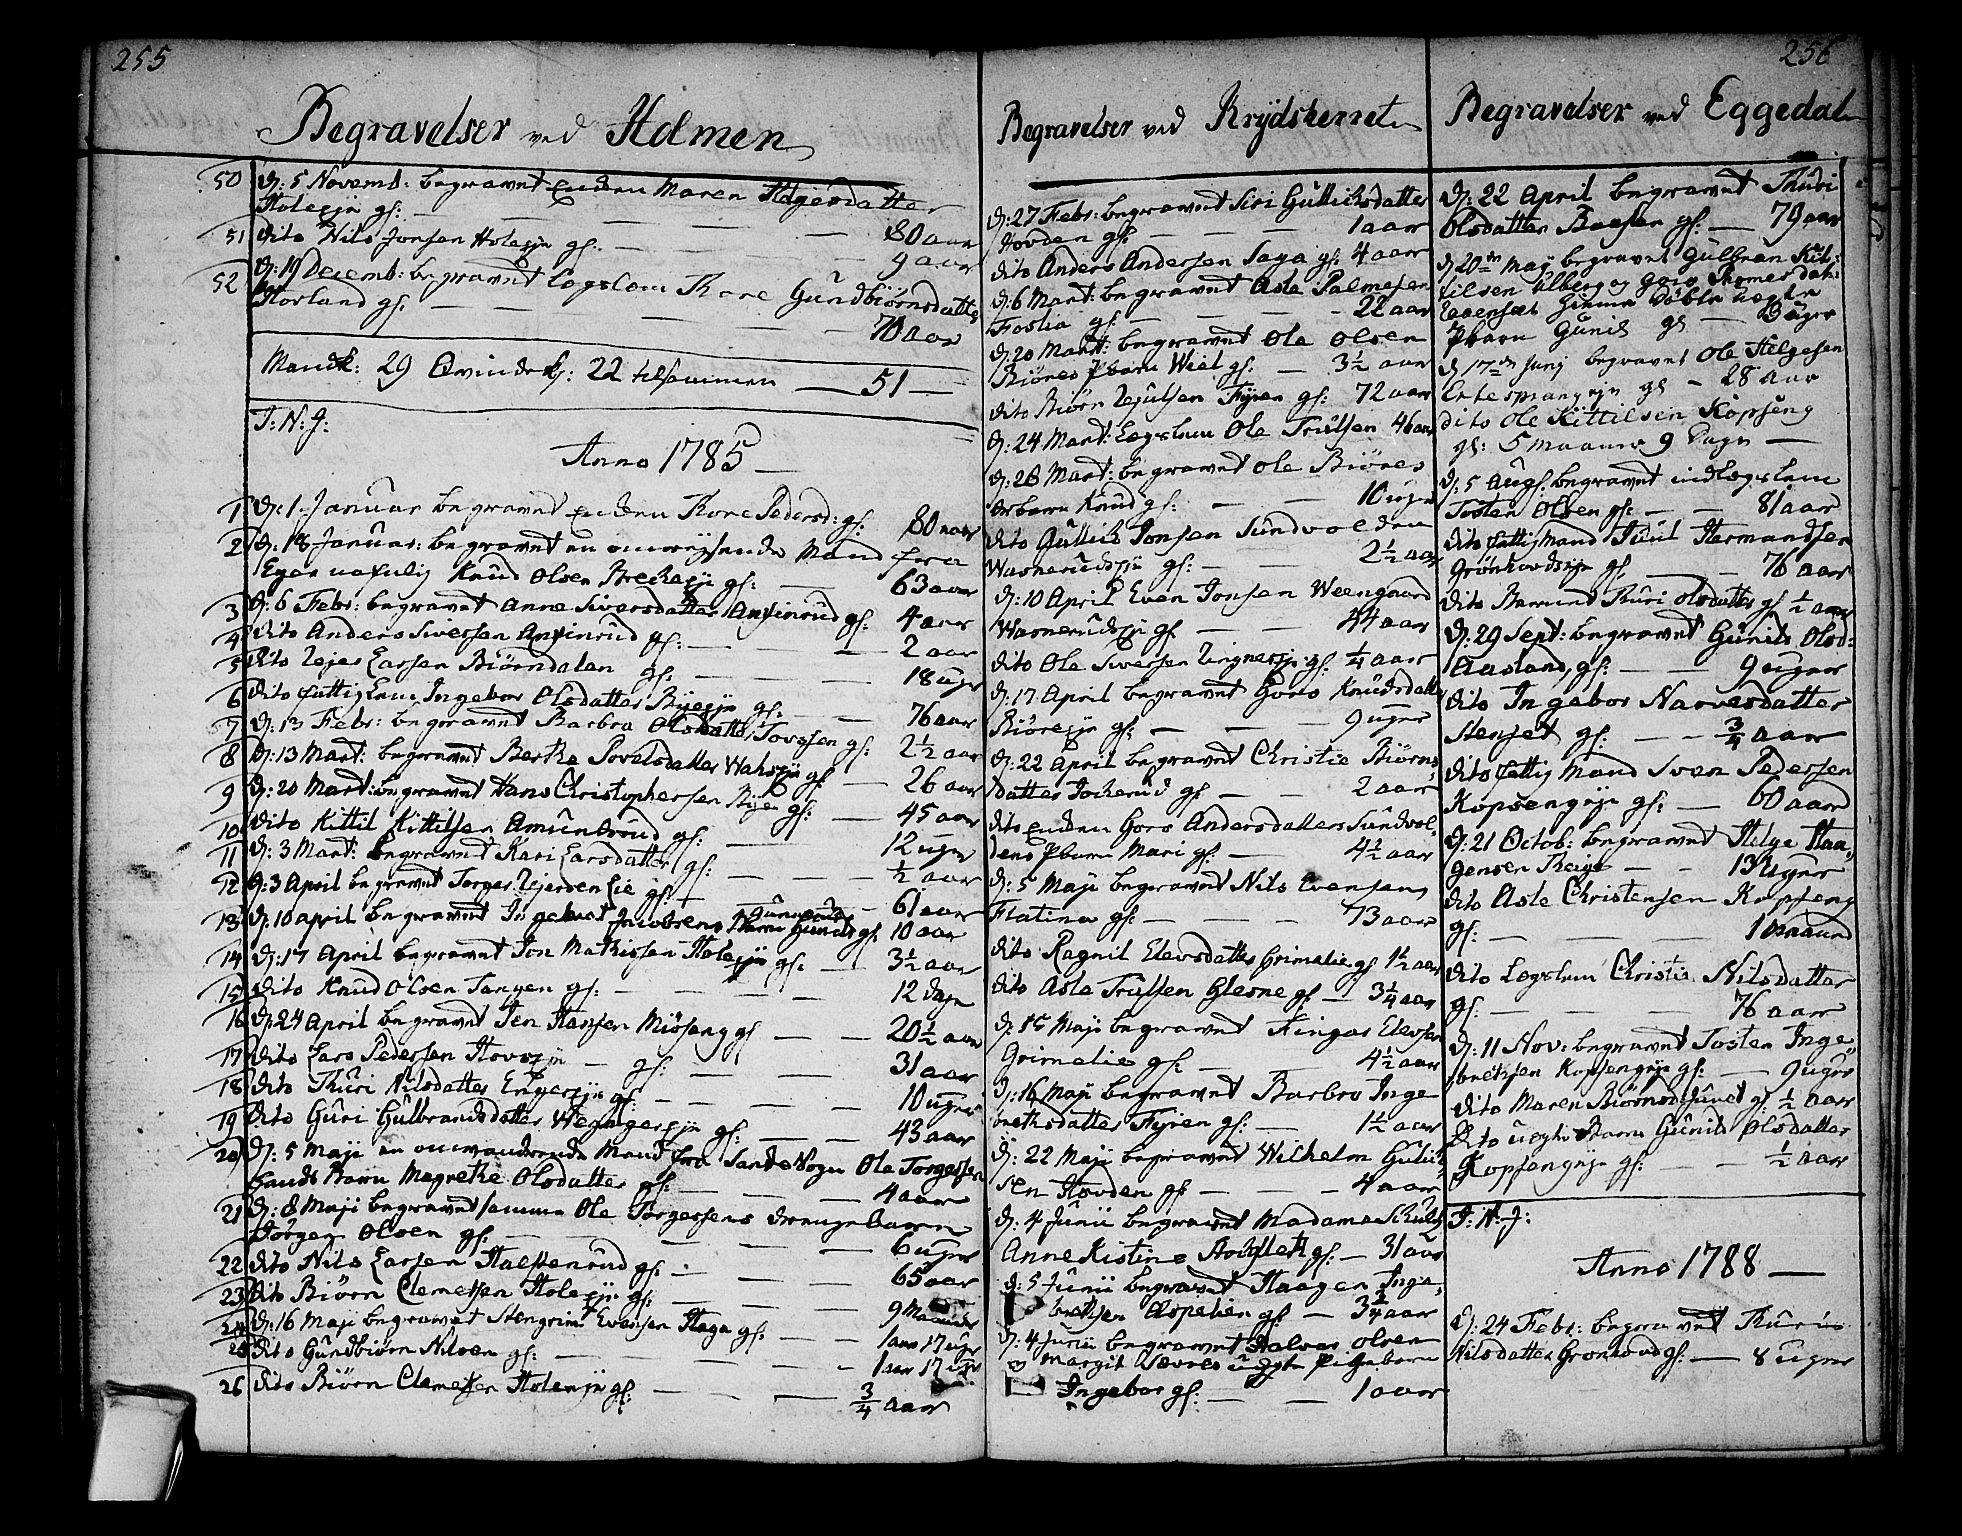 255
Begravelser ved Holmen
50 d: 5 Novemb: begravet Enken Maren Helgesdatter
Holesje gl: 80 aar
51 dito Nils Jonsen Holesje gl: 9 aar
52 d: 19 Decemb: begravet Logslem Kore Gundbiørnsdatter
Horland gl: 70 aar
Mandk: 29 Qvindekj: 22 tilsammen 51
J: N: J:
Anno 1785
1 d: 1. Januar begravet Enken Kore Pedersd: gl: 80 aar
2 d: 18 Januar: begravet en omreysende Mand fra
Eger nafnlig Knud Olsen Brekesje gl: 63 aar
3 d: 6 Febr: begravet Anne Siversdatter Anfinrud gl: 4 aar
4 dito Anders Siversen Anfinrud gl: 2 aar
5 dito Lejer Larsen Biørndalen gl: 18 uger
6 dito fattig Lem Ingebor Olsdatter Byesje gl: 76 aar
7 d: 13 Febr: begravet Barbro Olsdatter Tovsen gl: 2½ aar
8 d: 13 Mart: begravet Berthe Povelsdatter Wahsje gl: 26 aar
9 d: 20 Mart: begravet Hans Christophersen Byen gl: 45 aar
10 dito Kittil Kittilsen Amundrud gl: 12 uger
11 d: 3 Mart: begravet Kari Larsdatter gl: ½ aar
12 d: 3 April begravet Torger Lie gl: 61 aar
13 d: 10 april begravet Ingebret Jacobsens Barn Gunild gl: 10 aar
14 d: 17 April begravet Jon Mathissen Holesje gl: 3½ aar
15 dito Knud Olsen Tangen gl: 12 dage
16 d: 24 April begravet Jen Hansen Miøseng gl 20½ aar
17 dito Lars Pedersen Hovsje gl: 31 aar
18 dito Thuri Nilsdatter Engersje gl: 10 uger
19 dito Guri Gulbrandsdatter Wegngersje gl: 43 aar
20 d: 5 Maji en omvandrende Mand fra Sande Sogn Ole Torgersen
Sands Barn Magrethe Olsdatter gl: 4 aar
21 d: 8 Maji begravet samme Ole Torgersens drengebarn
Jørgen Olsen gl: 6 uger
22 dito Nils Larsen Haffenrud gl: 65 aar
23 dito Biørn Clemetsen Holesje gl: 9 Maaneder
24 d: 16 Maji begravet Stengrim Evensen Haga gl: 1 aar 17 uger
25 dito Gundbiørn Nilsen gl: 1 aar 17 uger
26 dito Biørn Clemetsen Holensje gl: ¾ aar
Begravelser ved Krydsherret
d: 27 Febr: begravet Siri Gullichsdatter
Hovden gl: 1 aar
dito Anders Andersen Saga gl: 4 aar
d: 6 Mart: begravet Asle Palmesen
Foslia gl: 22 aar
d: 20 Mart: begravet Ole Olsen
Biøres Pbarn Wiel gl: 3½ aar
dito Biørn Tejulsen Fyren gl: 72 aar
d: 24 Mart: Logslem Ole Trulsen 46 aar
d: 28 Mart: begravet Ole Biøres
Pbarn Knud gl: 10 uger
dito Gullich Jonsen Sundvolden
Warnerudsje gl: 2½ aar
d: 10 April Even Jonsen Weengaard
Warnerudsje gl 44 aar
dito Ole Siversen Ringnessje gl: ¼ aar
d: 17 April begravet Goro Knudsdatter
Bioresje gl: 9 uger
d: 22 April begravet Christie Biørns
datter Jokerud gl 2 aar
dito Enken Goro Andersdatters Sundvol-
dens Pbarn Mari gl: 4½ aar
d: 5 Maji begravet Nils Evensens
Flatina gl: 73 aar
dito Ragnil Elevsdatter Grimelie gl 1½ aar
dito Asle Trulsen Glesne gl 3¼ aar
d: 15 Maji begravet Fingar Elevsen
Grimelie gl: 4½ aar
d: 16 Maji begravet Barbro Inge
brethsdatter Fyren gl: 1½ aar
d: 22 Maji begravet Wilhelm Gulich
sen Hovden gl: 4 aar
d: 4 Junii begravet Madame Schultz
Anne Kistine gl: 31 aar
d: 5 Junii begravet Haagen Inge
brethsen Aspelien gl: 3¾ aar
d: 4 Junii begravet Halvor Olsen
Margit Nævres uægte Pigebarn
Ingebor gl: 1 aar
256
Begravelser ved Eggedal
d: 22 April begravet Thuri
Olsdatter Baasen gl: 79 aar
d 20de Maj begravet Gulbran Kit-
tilsen Ulberg og Goro Thomesdatter
Evensæt uægte
Pbarn Gunild gl 3 uger
d 17de Junj begravet Ole Helgesen
Ertesprangeje gl 28 aar
dito Ole Kittilsen Kopseng
gl: 5 maaner 9 Dage
d: 5 Augs: begravet indlogslem
Tosten Olsen gl: 81 aar
dito fattig Mand Juul Hermandsen
Grønhovdseje gl 76 aar
dito Barnet Thuri Olsdatter gl ½ aar
d: 29 Sept: begravet Gunild Olsd:
Aasland, gl: 9 uger
dito Ingebor Narvesdatter
Stenset gl: ¾ aar
dito fattig Mand Sven Pedersen
Kopsengeje gl: 60 aar
d: 21 Octob: begravet Helge Haa-
gensen Teige 13 uger
dito Asle Christensen Kopseng
gl: 1 Maaned
dito Logslem Christie Nilsdatter
gl: 76 aar
d: 11 Nov: begravet Tosten Inge
brethsen Kopsengeje gl: 9 uger
dito Maren Biørnsd: Juvet gl: ½ aar
dito uegte Barn Gunild Olsdatter
Kopsengeje gl: ½ aar
J: N: J:
Anno 1788
d: 24 Febr: begravet Thuri
Nilsdatter Grønhovd gl: 8 uger